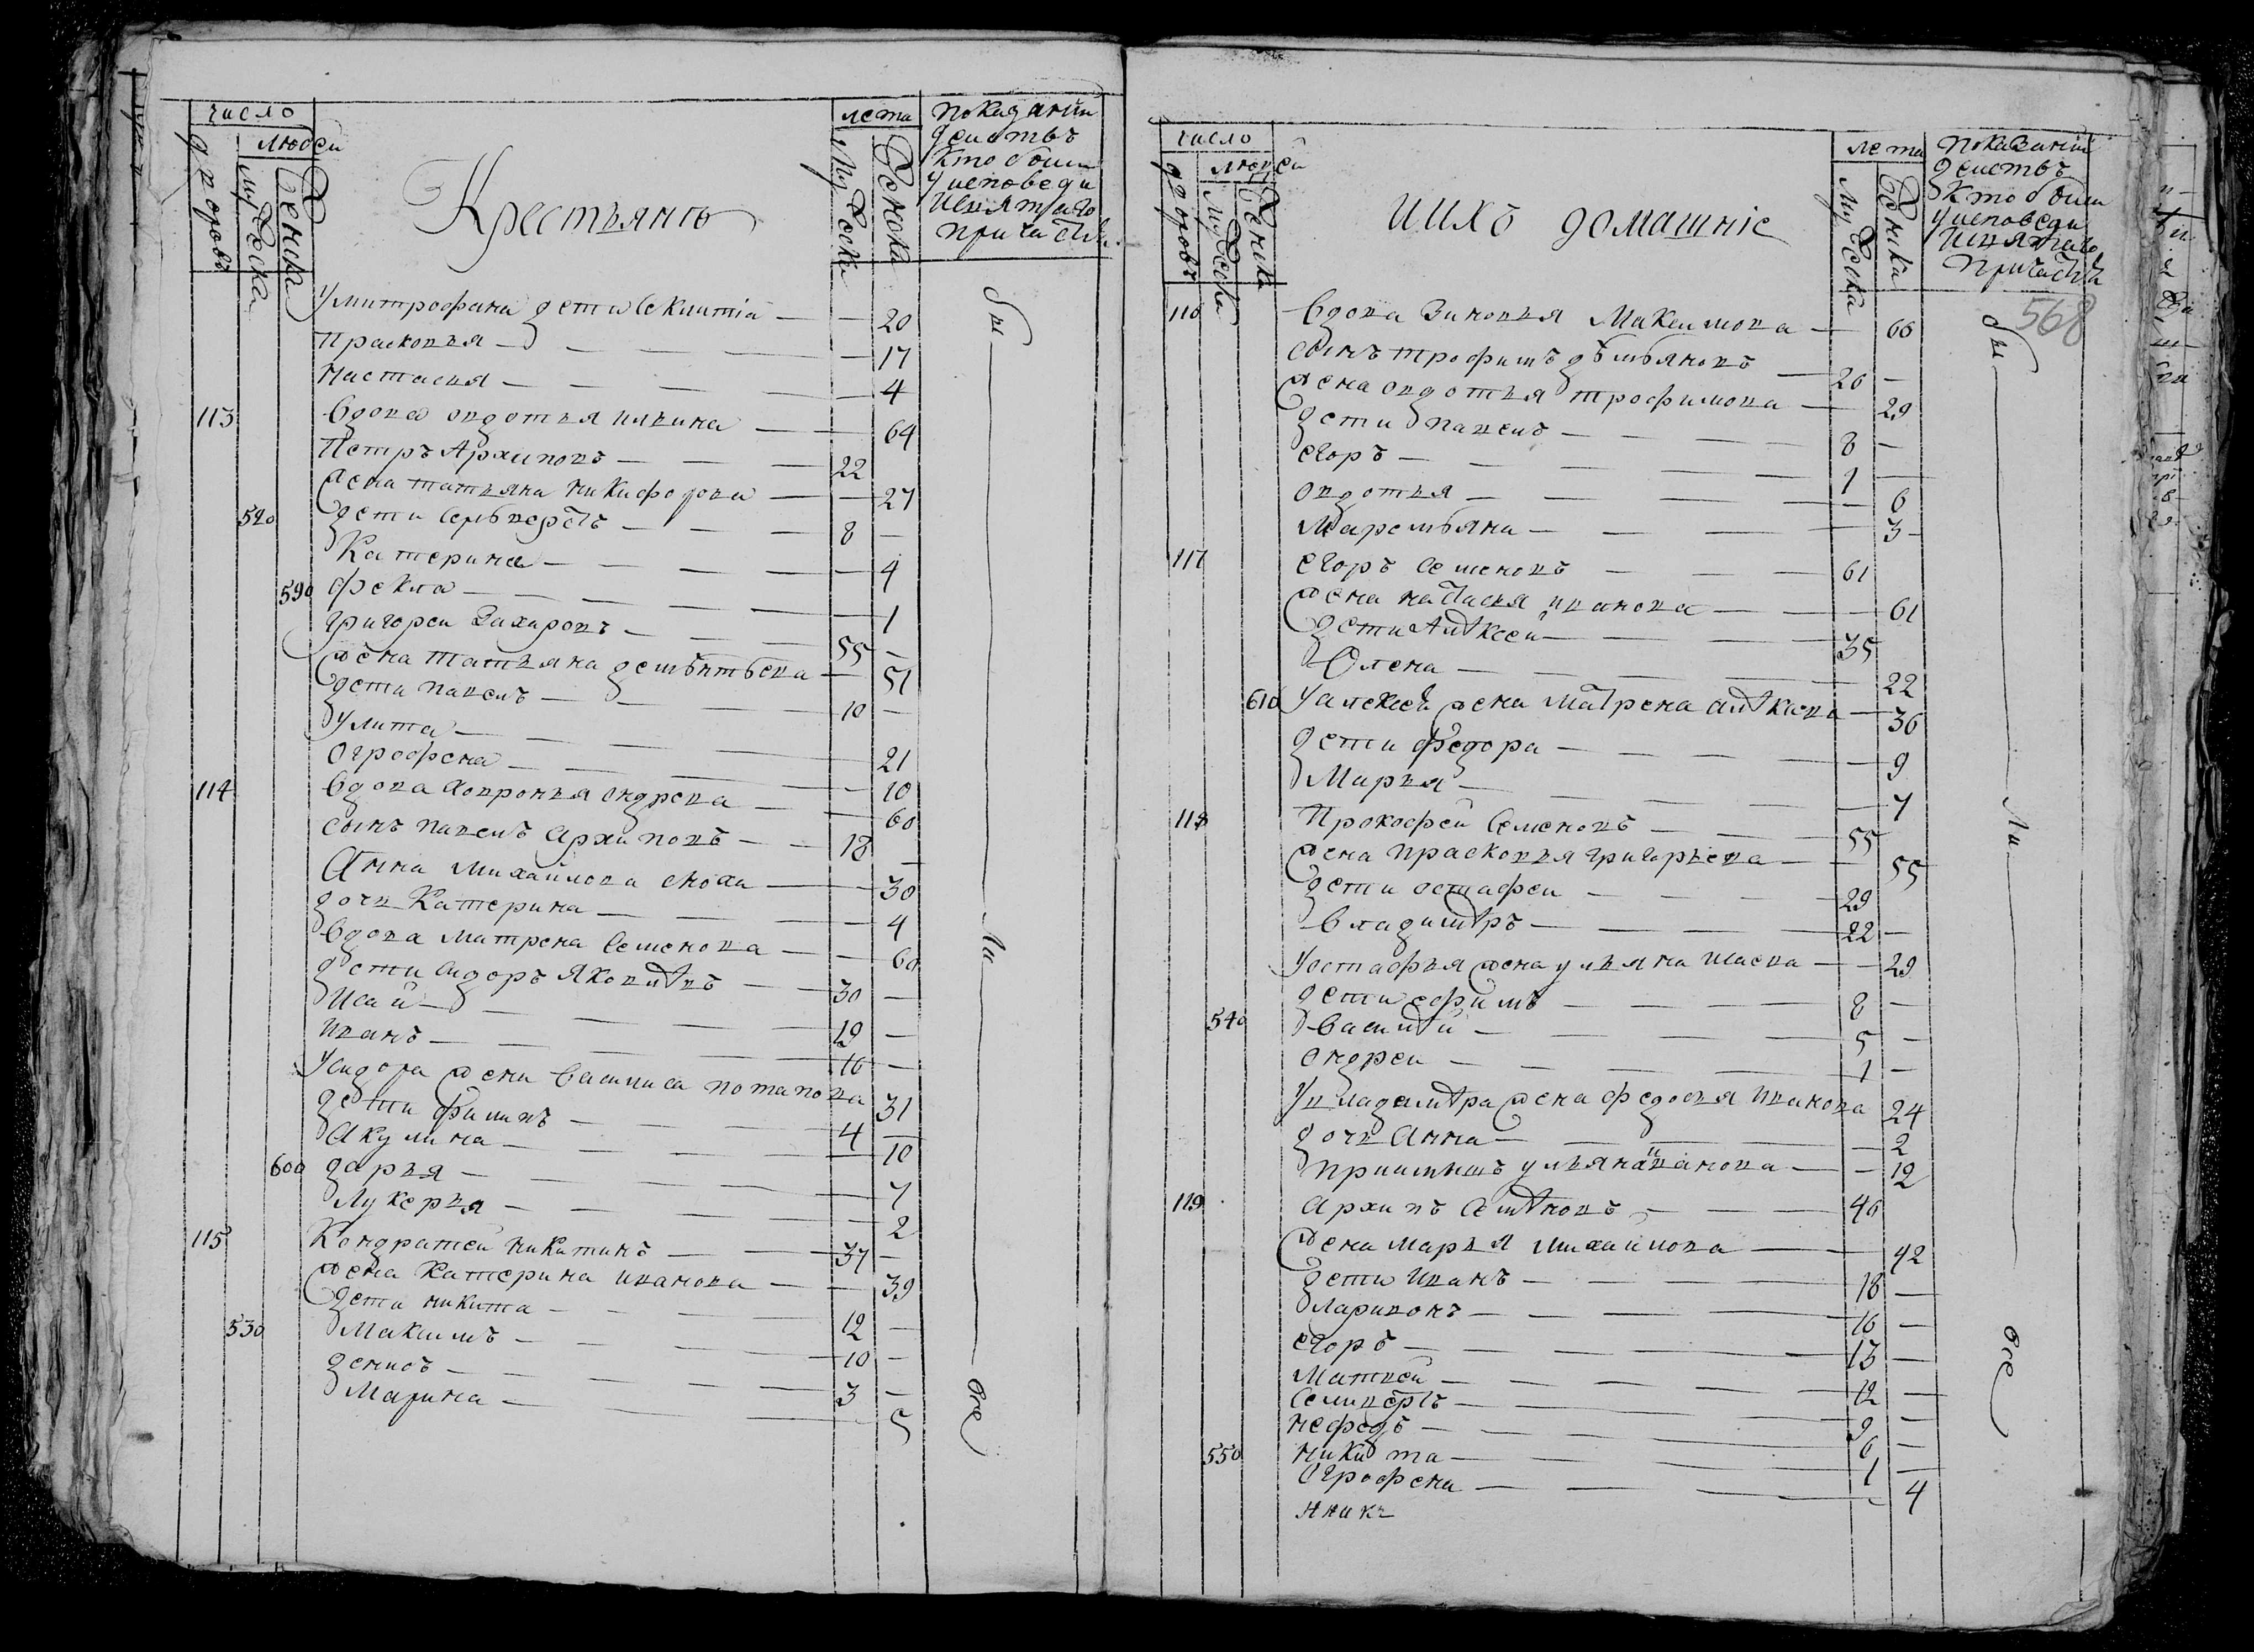 число
людей
дворовъ
мужеска
женска
Крестьянъ
лета
мужеска
женска
показаніи
действъ
кто былъ
у исповеди
и святаго
причастія
у митрофана дети секлитіа 20
Прасковья 17
настасья 4
113 вдова овдотья ильина 64
Петръ Архиповъ 22
жена татьяна никифорова 27
520 дети Селиверстъ 8
Катерина 4
590 фекла 1
григореи Захаровъ 55
жена татьяна дементьева 51
дети павелъ 10
улита 21
Огрофена 10
114 вдова ховронья ондрева 60
сынъ павелъ архиповъ 18
Анна михаилова сноха 30
дочь Катерина 4
вдова матрена семенова 60
дети сидоръ яковлевъ 30
Исаи 19
иванъ 16
у сидора жена василиса потапова 31
дети филипъ 4
акулина 10
600 дарья 7
лукерья 2
115 Кондратеи никитинъ 37
жена Катерина иванова 39
дети никита 12
530 Максимъ 10
денисъ 3
Марина 5
бы
ли
все
число
людей
дворовъ
мужеска
женска
ИИХЪ домашніе
лета
мужеска
женска
показаніи
действъ
кто былъ
у исповеди
и святаго
причастія
568
116 вдова Зиновья Максимова 66
сынъ трофимъ демьяновъ 26
жена овдотья трофимова 29
дети павелъ 8
егоръ 1
овдотья 6
Маремьяна 3
117 егоръ семеновъ 61
жена настасья иванова 61
дети Алексеи 35
Олена 22
610 у алексея жена матрена алексеева 36
дети федора 9
Марья 7
118 Прокофеи семеновъ 55
жена прасковья григорьева 55
дети остафеи 29
владимеръ 22
у остафья жена ульяна исаева 29
дети ефимъ 8
540 василеи 5
ондреи 1
у владимера жена федосья иванова 24
дочь анна 2
приимышъ ульяна иванова 12
119 архипъ семеновъ 46
жена марья михаилова 42
дети иванъ 18
ларивонъ 16
егоръ 13
Матвеи 12
селиверстъ 9
нефедъ 6
550 никита 1
огрофена 4
бы
ли
все